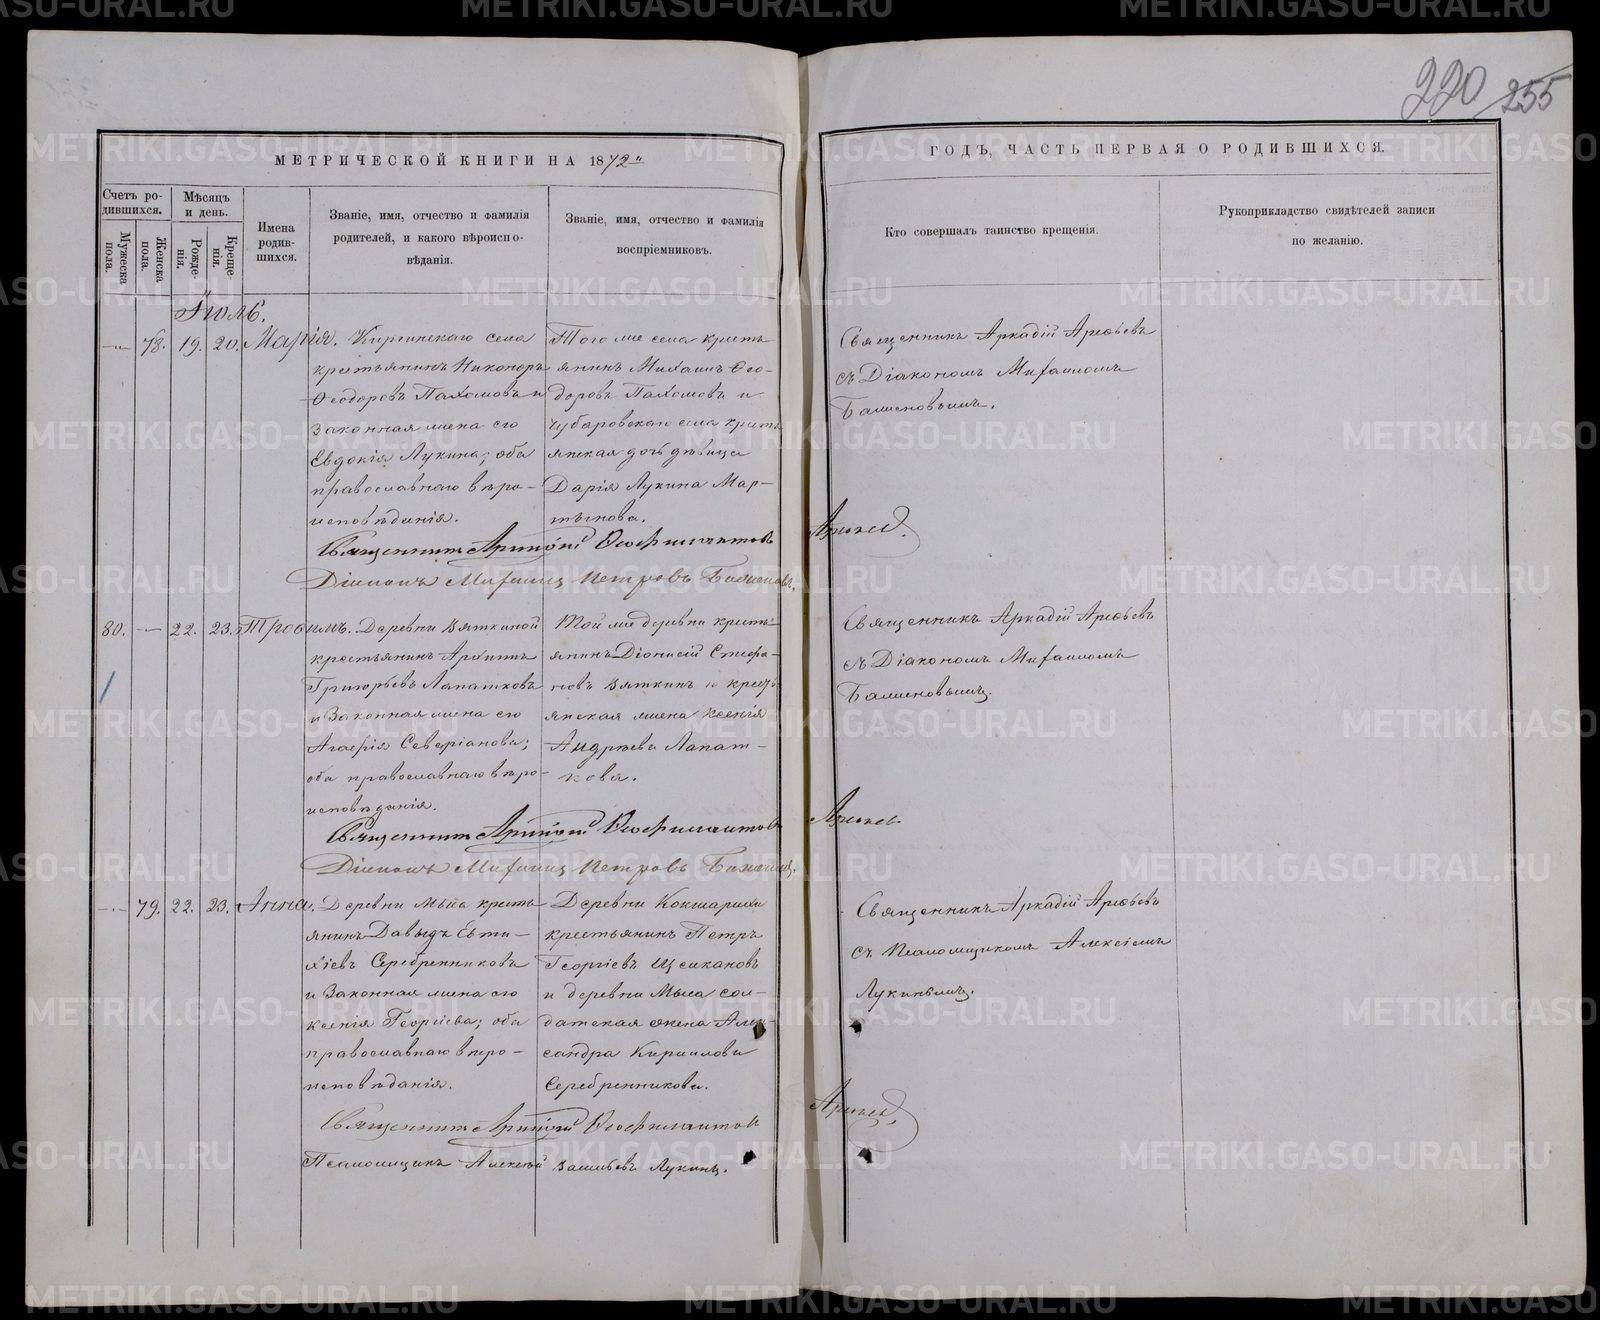 220 255
МЕТРИЧЕСКОЙ КНИГИ НА 1872
ГОДЪ, ЧАСТЬ ПЕРВАЯ О РОДИВШИХСЯ.
Счетъ ро-
дившихся.
Мужеска
пола.
Женска
пола.
Мѣсяцъ
и день.
Рожде-
нія.
Креще-
нія.
Имена
родив-
шихся.
Званіе, имя, отчество и фамилія
родителей, и какого вѣроиспо-
вѣданія.
Званіе, имя, отчество и фамилія
воспріемниковъ.
Кто совершалъ таинство крещенія.
Рукоприкладство свидѣтелей записи
по желанію.
Іюль.
78. 19. 20. Марія.
Киргинскаго села
крестьянинъ Никаноръ
Ѳеодоровъ Пахомовъ и
законная жена его
Евдокія Лукина; оба
православнаго вѣро-
исповѣданія.
Того же села кресть
янинъ Михаилъ Ѳео-
доровъ Пахомовъ и
Чубаровскаго села кресть
янская дочь дѣвица
Дарія Лукина Мар-
тынова.
Священникъ Аркадій Арефьевъ
съ Діакономъ Михаиломъ
Баженовымъ.
Священникъ Аркадій Арефьевъ
Діаконъ Михаилъ Петровъ Баженовъ.
80. 22. 23. Трофимъ.
Деревни Вяткиной
крестьянинъ Архипъ
Григорьевъ Лапатковъ
и законная жена его
Агафія Северіанова;
оба православнаго вѣро-
исповѣданія.
Той же деревни кресть
янинъ Діонисій Стефа-
новъ Вяткинъ и кресть
янская жена Ксенія
Андреева Лапат-
кова.
Священникъ Аркадій Арефьевъ
съ Діакономъ Михаиломъ
Баженовымъ.
Діаконъ Михаилъ Петровъ Баженовъ.
79. 22. 23. Анна.
Деревни Мыса кресть
янинъ Давыдъ Евти-
хіевъ Серебренниковъ
и законная жена его
Ксенія Георгіева; оба
православнаго вѣро-
исповѣданія.
Деревни Кокшариха
крестьянинъ Петръ
Георгіевъ Цсикановъ
и деревни Мыса сол-
датская жена Алек-
сандра Кириллова
Серебренникова.
Священникъ Аркадій Арефьевъ
съ Псаломщикомъ Алексіемъ
Лукинымъ.
Псаломщикъ Алексѣй Лукинъ.
METRIKI.GASO-URAL.RU